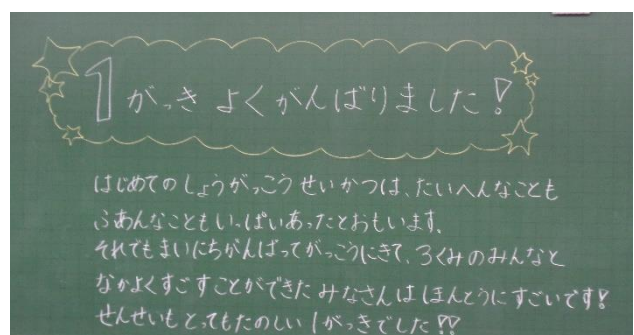 1がっき よくがんばりました!
はじめてのしょうがっこうせいかつは、たいへんなことも
ふあんなこともいっぱいあったとおもいます。
それでもまいにちがんばってがっこうにきて、3くみのみんなと
なかよくすごすことができたみなさんはほんとうにすごいです!
せんせいもとってもたのしい1がっきでした!!